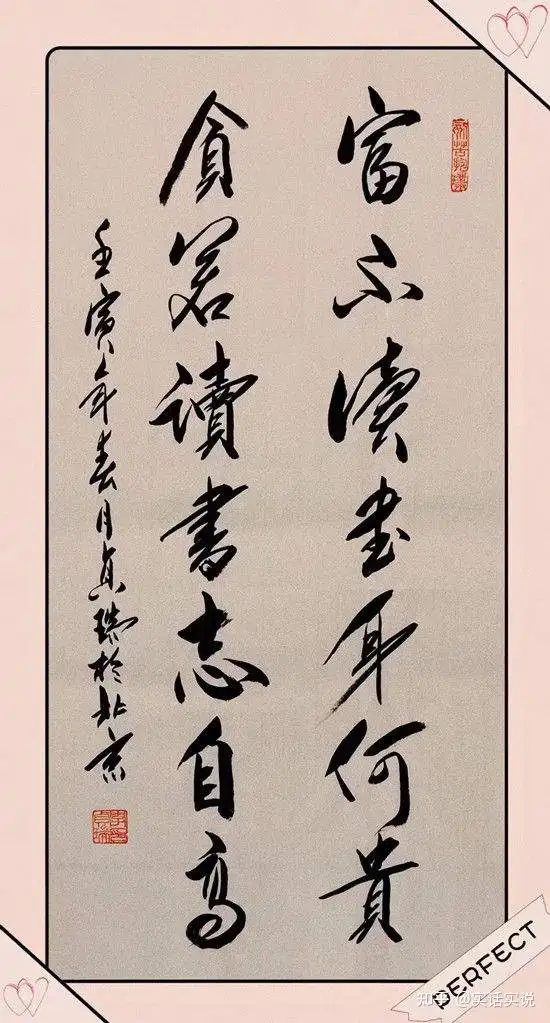 富不讀書身何貴
貧若讀書志自高
壬寅年春月貞瑞於北京
PERFECT
知乎 @实话实说